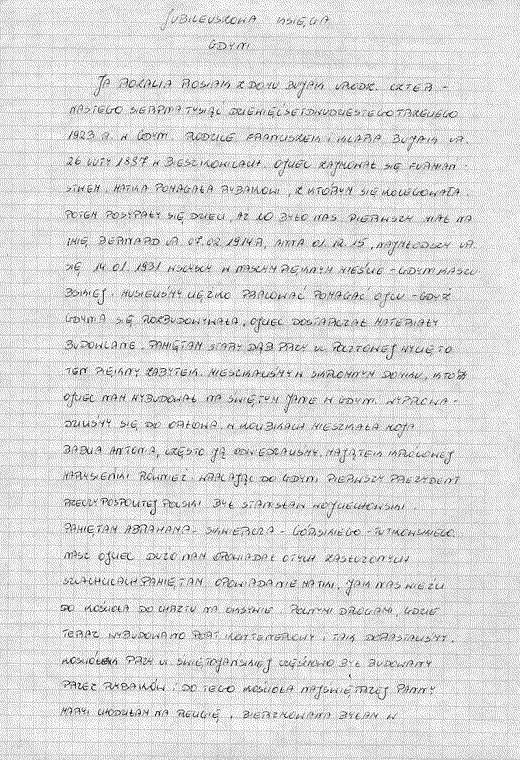 JUBILEUSZOWA KSIĘGA
GDYNI
JA ROZALIA ROSIAK Z DOMU BUJAK URODZ. CZTER-
NASTEGO SIERPNIA TYSIĄC DZIEWIĘĆSET DWUDZIESTEGO TRZECIEGO
1923 R. W GDYNI. RODZICE FRANCISZEK I KLARA BUJAK UR.
26 LUTY 1887 W BIESZKOWICACH. OJCIEC ZAJMOWAŁ SIĘ FURMAN-
STWEM, MATKA POMAGAŁA RYBAKOWI, Z KTÓRYM SIĘ KOLEGOWAŁA.
POTEM POSYPAŁY SIĘ DZIECI, AŻ 10 BYŁO NAS. PIERWSZY MIAŁ NA
IMIĘ BERNARD UR. 07.02 1914R, ANNA 01.12.15, NAJMŁODSZY UR.
SIĘ 14.01.1931 WSZYSCY W NASZYM PIĘKNYM MIEŚCIE - GDYNI KASZU-
BSKIEJ. MUSIELIŚMY CIĘŻKO PRACOWAĆ POMAGAĆ OJCU - GDYŻ
GDYNIA SIĘ ROZBUDOWYWAŁA, OJCIEC DOSTARCZAŁ MATERIAŁY
BUDOWLANE. PAMIĘTAM STARY DĄB PRZY UL. POCZTOWEJ WYCIĘTO
TEN PIĘKNY ZABYTEK. MIESZKALIŚMY W SKROMNYM DOMKU, KTÓRY
OJCIEC NAM WYBUDOWAŁ NA ŚWIĘTYM JANIE W GDYNI. WYPROWA-
DZILIŚMY SIĘ DO ORŁOWA. W KOLIBKACH MIESZKAŁA MOJA
BABCIA ANTONIA, CZĘSTO JĄ ODWIEDZALIŚMY. MAJĄTEK KRÓLOWEJ
MARYSIEŃKI RÓWNIEŻ. WRACAJĄC DO GDYNI PIERWSZY PREZYDENT
RZECZYPOSPOLITEJ POLSKI BYŁ STANISŁAW WOJCIECHOWSKI.
PAMIĘTAM ABRAHAMA - SKWIERCZA - GÓRSKIEGO -
NASZ OJCIEC DUŻO NAM OPOWIADAŁ O TYCH ZASŁUŻONYCH
SZLACHCICACH PAMIĘTAM OPOWIADANIE MATKI, JAK NAS WIEŹLI
DO KOŚCIOŁA DO CHRZTU NA OKSYWIE. POLNYMI DROGAMI, GDZIE
TERAZ WYBUDOWANO PORT KONTENEROWY. TAK DORASTALIŚMY.
KOŚCIÓŁEK PRZY UL. ŚWIĘTOJAŃSKIEJ CZĘŚCIOWO BYŁ BUDOWANY
PRZEZ RYBAKÓW. DO TEGO KOŚCIOŁA NAJŚWIĘTSZEJ PANNY
MARYI CHODZIŁAM NA RELIGIĘ, BIERZMOWANA BYŁAM W